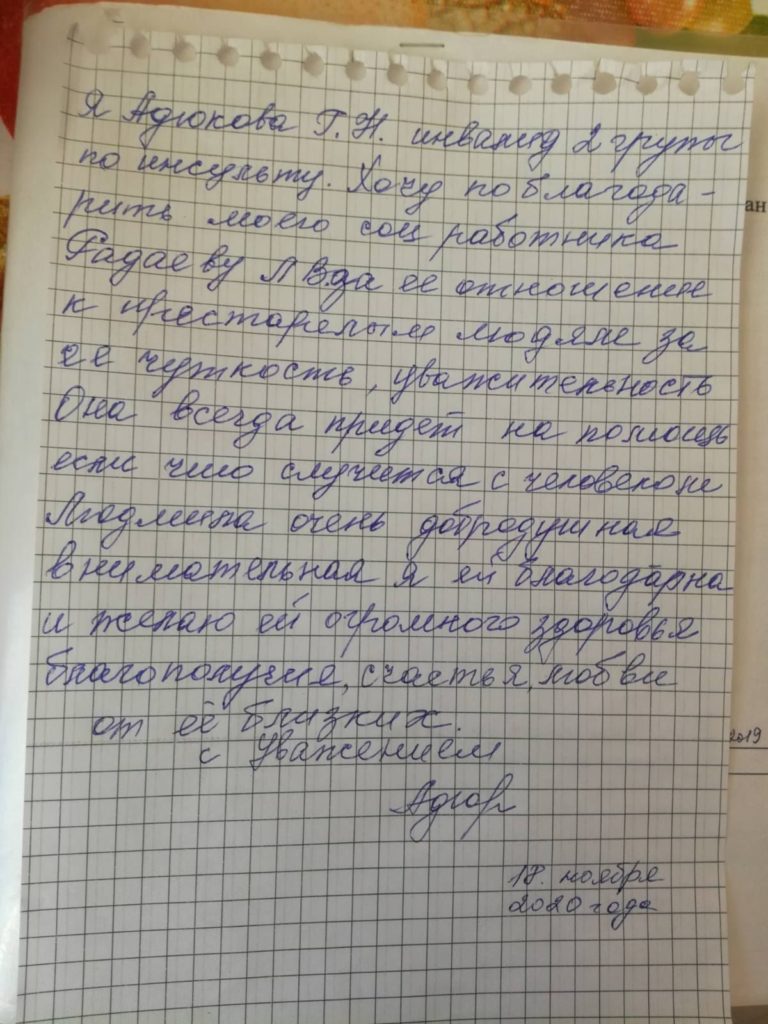 Я Адюкова Г.Н. инвалид 2 групы
по инсульту. Хочу поблагода-
рить моего соц работника
Радаеву Л В за ее отношение
к престарелым людям за
ее чуткость, уважительность
Она всегда придет на помощь
если что случится с человеком
Людмила очень добродушная
внимательная я ей благодарна
и желаю ей огромного здоровья
благополучия, счастья, любви
от её близких.
с Уважением
18. ноября
2020 года
ан
2019